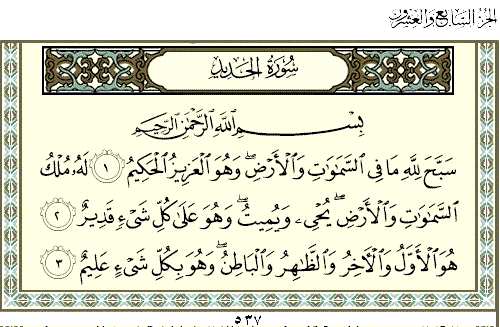 الجزء السابع والعشرون
سورة الحديد
بِسْمِ اللَّهِ الرَّحْمَٰنِ الرَّحِيمِ
سَبَّحَ لِلَّهِ مَا فِي السَّمَٰوَٰتِ وَالْأَرْضِ ۖ وَهُوَ الْعَزِيزُ الْحَكِيمُ ١ لَهُ مُلْكُ
السَّمَٰوَٰتِ وَالْأَرْضِ ۖ يُحْيِۦ وَيُمِيتُ ۖ وَهُوَ عَلَىٰ كُلِّ شَيْءٍ قَدِيرٌ ٢
هُوَ الْأَوَّلُ وَالْآخِرُ وَالظَّٰهِرُ وَالْبَاطِنُ ۖ وَهُوَ بِكُلِّ شَيْءٍ عَلِيمٌ ٣
٥٣٧